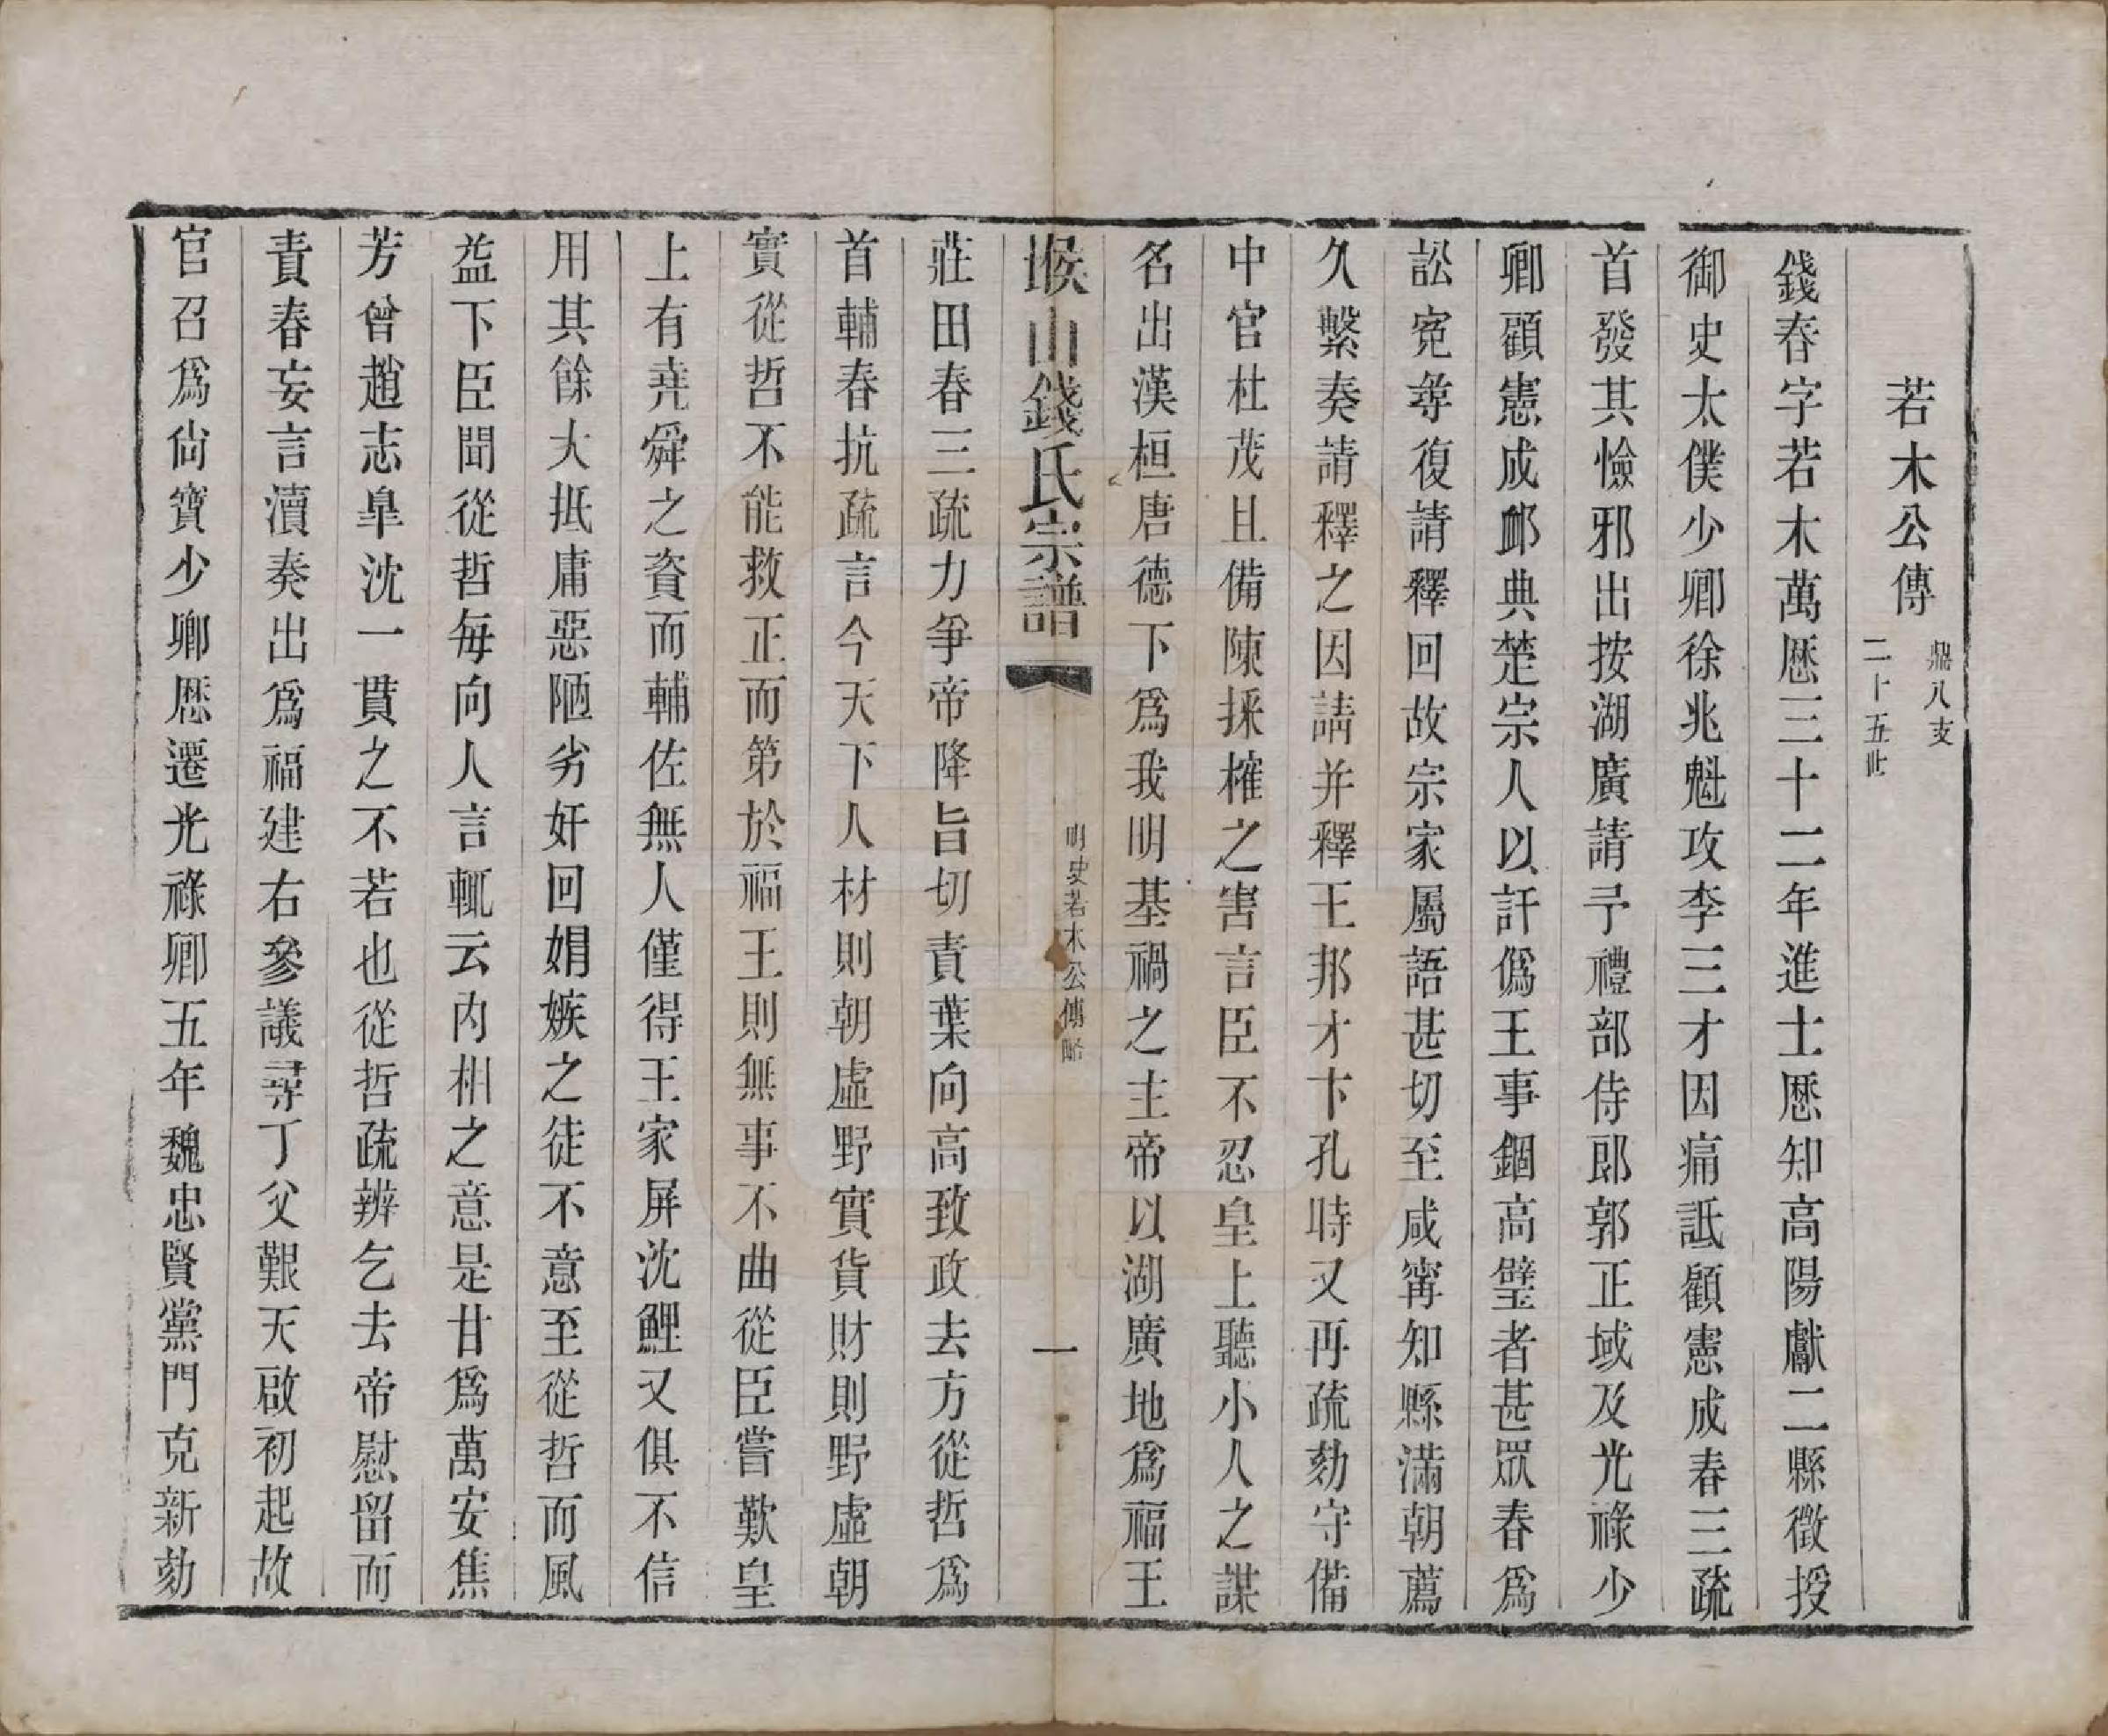 若木公傳 鼎八支 二十五世
錢春字若木萬厯三十二年進士厯知高陽獻二縣徵授
御史太僕少卿徐兆魁攻李三才因痛詆顧憲成春三疏
首發其憸邪出按湖廣請予禮部侍郎郭正域及光祿少
卿顧憲成卹典楚宗人以訐僞王事錮高墻者甚眾春爲
訟寃尋復請釋回故宗家屬語甚切至咸甯知縣滿朝薦
久繫奏請釋之因請并釋王邦才卞孔時又再疏劾守備
中官杜茂且備陳採榷之害言臣不忍皇上聽小人之謀
名出漢桓唐德下爲我明基禍之主帝以湖廣地爲福王
堠山錢氏宗譜 明史若木公傳 一
莊田春三疏力爭帝降旨切責葉向高致政去方從哲爲
首輔春抗疏言今天下人材則朝虛野實貨財則野虛朝
實從哲不能救正而第於福王則無事不曲從臣嘗歎皇
上有堯舜之資而輔佐無人僅得王家屏沈鯉又俱不信
用其餘大抵庸惡陋劣奸回娼嫉之徒不意至從哲而風
益下臣聞從哲每向人言輒云內相之意是甘爲萬安焦
芳曾趙志臯沈一貫之不若也從哲疏辨乞去帝慰留而
責春妄言瀆奏出爲福建右參議尋丁父艱天啟初起故
官召爲尙寶少卿厯遷光祿卿五年魏忠賢黨門克新劾